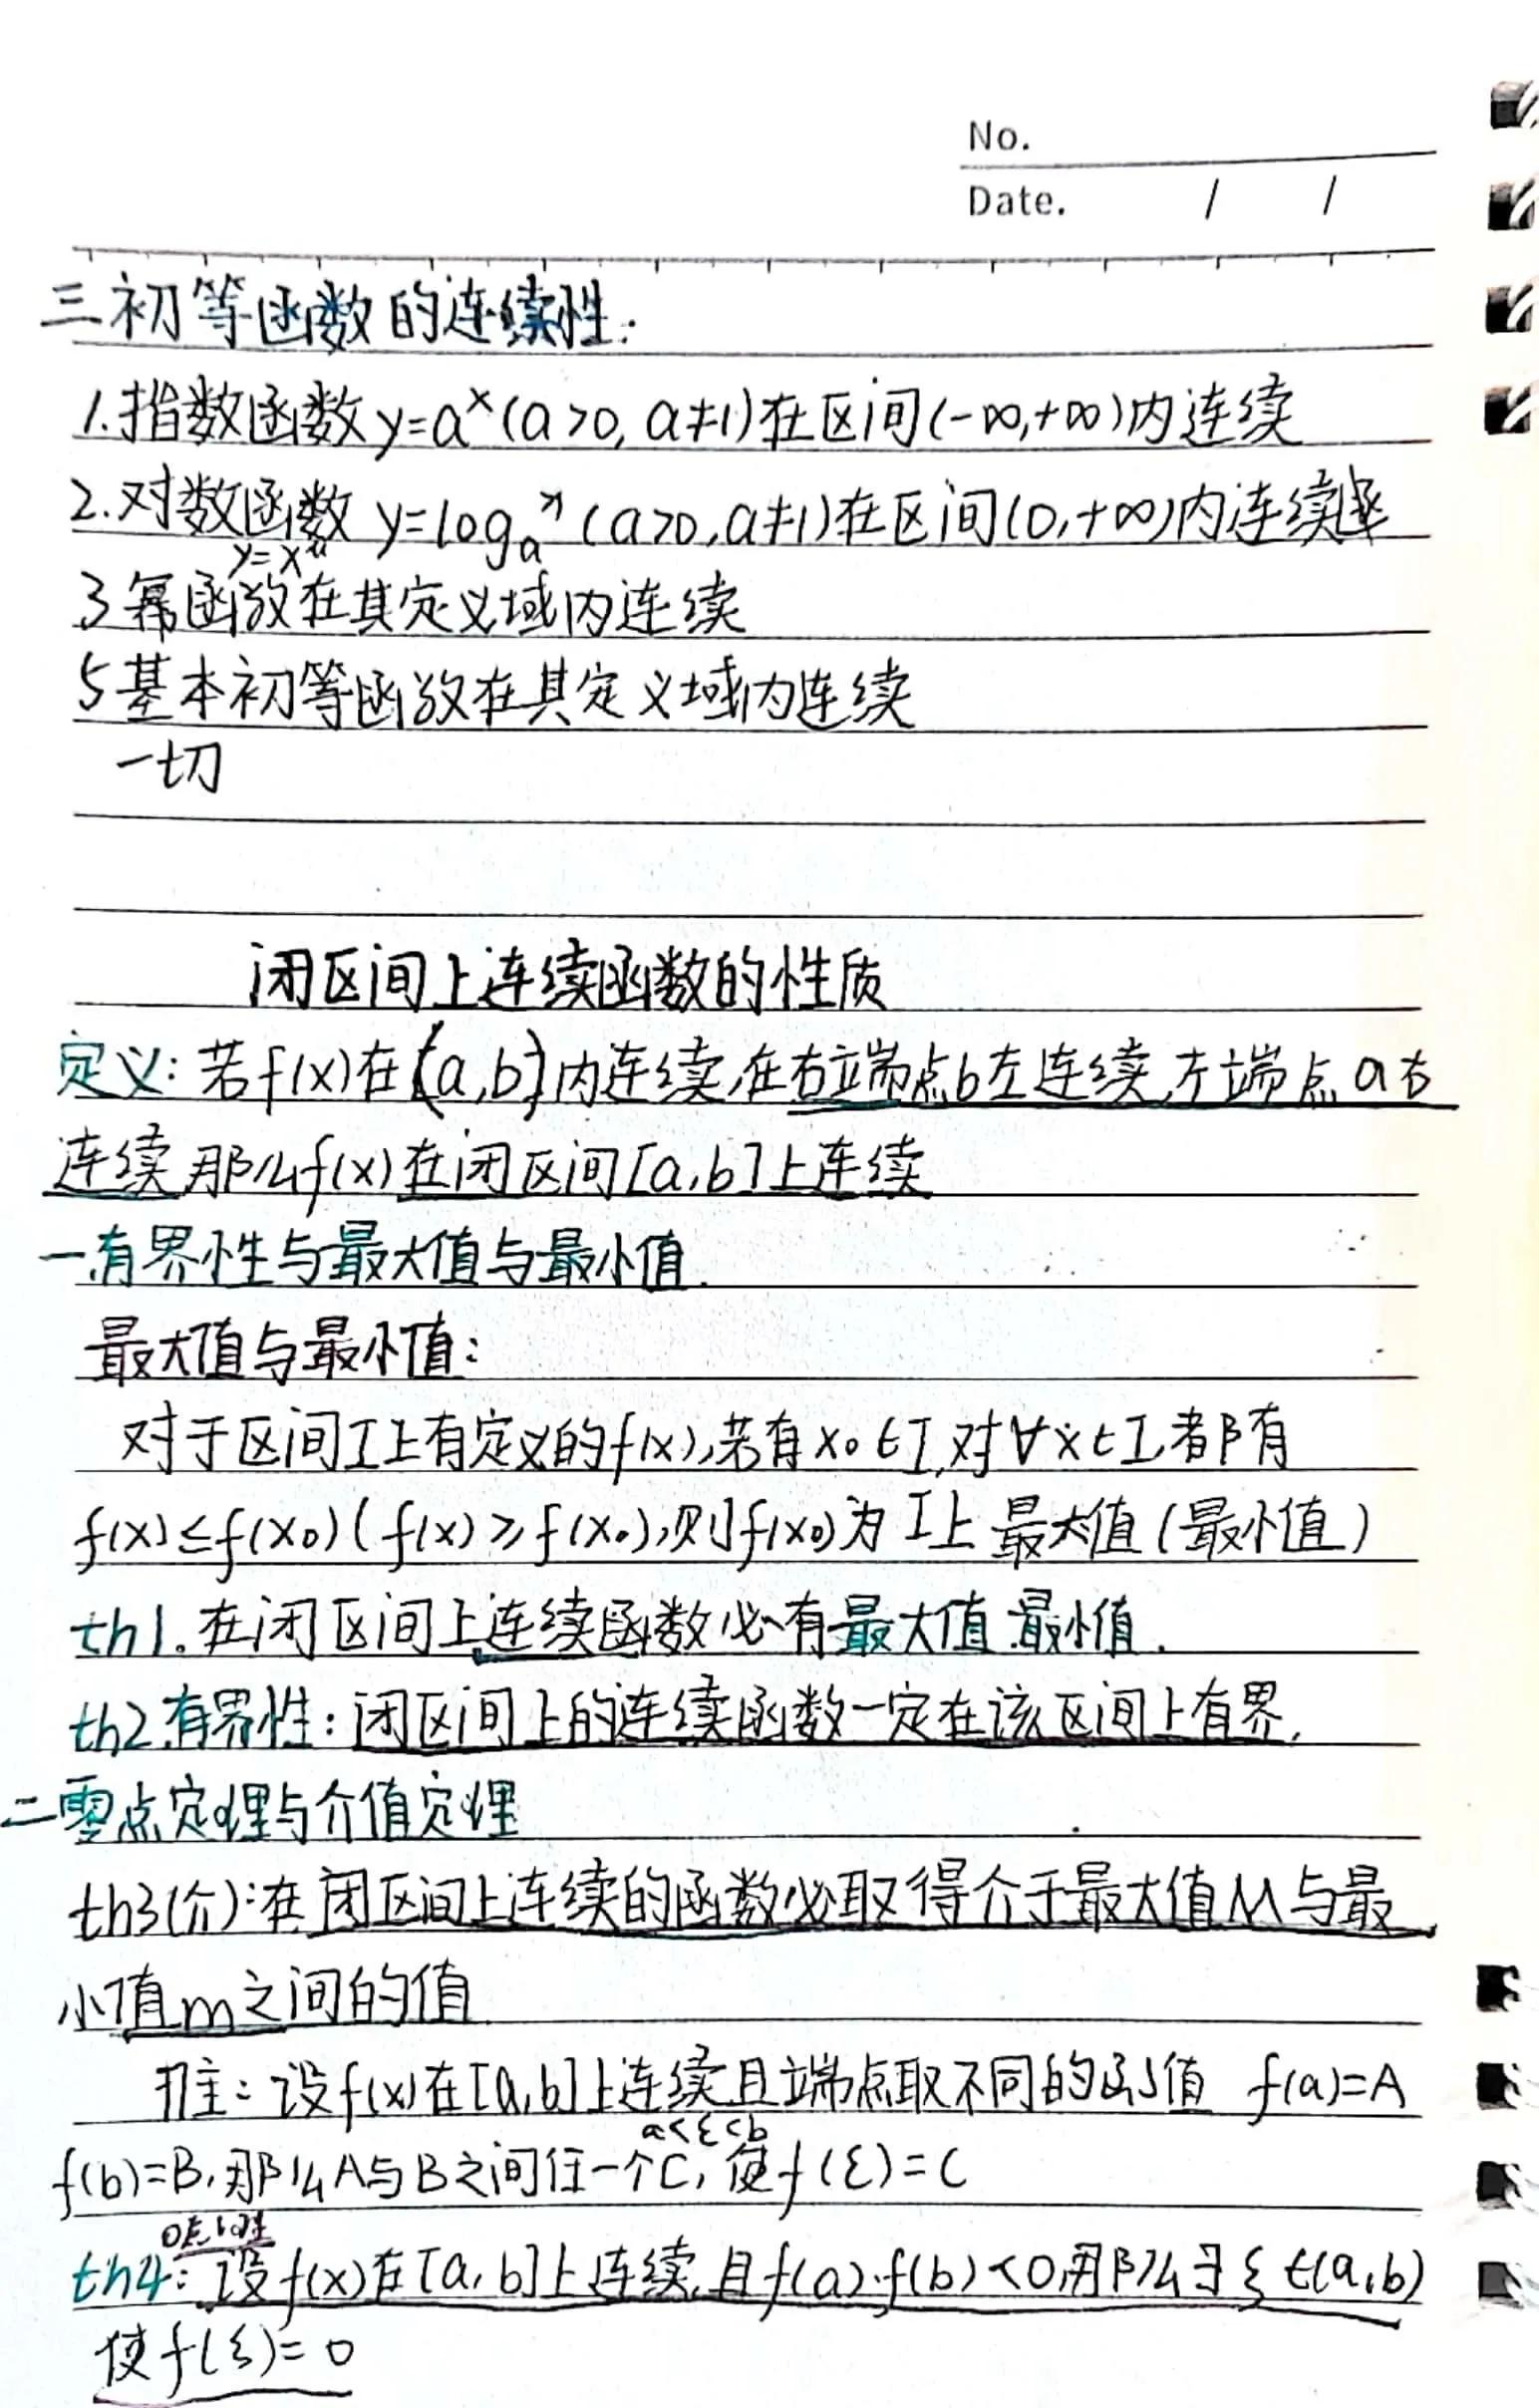 No.
Date. / /
三.初等函数的连续性:
1.指数函数y=aˣ(a>0,a≠1)在区间(-∞,+∞)内连续
2.对数函数 y=logₐˣ(a>0,a≠1)在区间(0,+∞)内连续
y=xᵃ
3幂函数在其定义域内连续
5基本初等函数在其定义域内连续
一切
闭区间上连续函数的性质
定义:若f(x)在(a,b)内连续,在右端点b左连续,左端点a右
连续 那么f(x)在闭区间[a,b]上连续
一.有界性与最大值与最小值.
最大值与最小值:
对于区间I上有定义的f(x),若有x₀∈I,对∀x∈I,都有
f(x)≤f(x₀)(f(x)≥f(x₀),则f(x₀)为I上最大值(最小值)
th1.在闭区间上连续函数必有最大值 最小值.
th2.有界性:闭区间上的连续函数一定在该区间上有界,
二零点定理与介值定理
th3(介):在闭区间上连续的函数必取得介于最大值M与最
小值m之间的值
推:设f(x)在[a,b]上连续且端点取不同的函值 f(a)=A
a<ξ<b
f(b)=B,那么A与B之间任一个C,使f(ξ)=C
0点
th4:设f(x)在[a,b]上连续,且f(a)·f(b)<0,那么∃ξ∈(a,b)
使f(ξ)=0